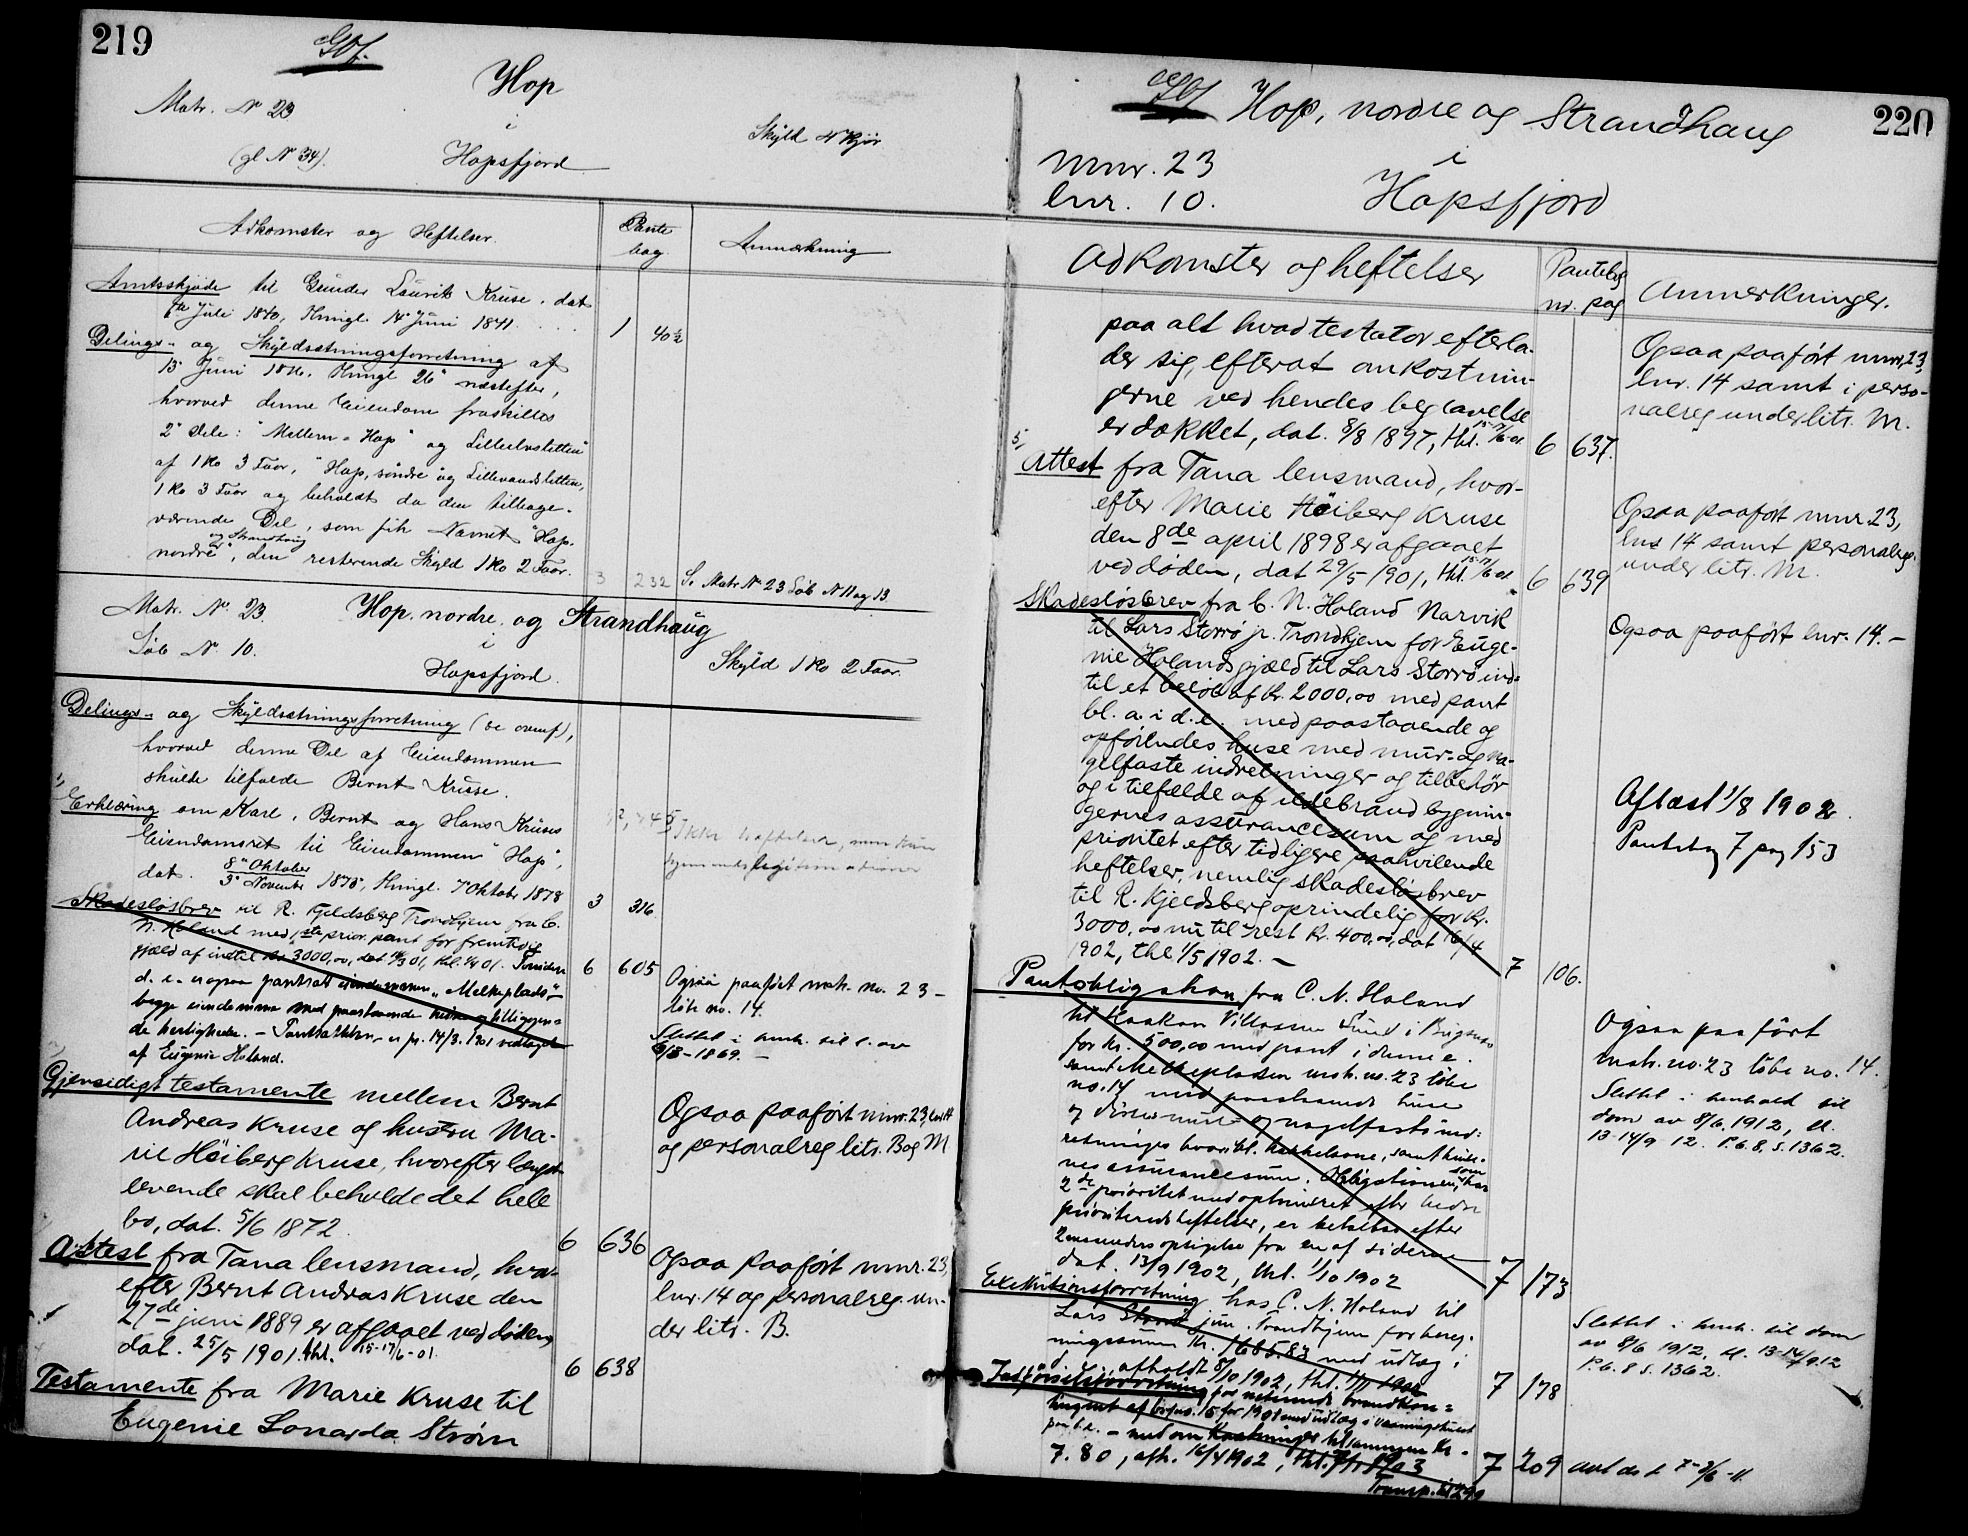 219
Hop
Matr. No 23
i
Skyld 4 Kjør
(gl No 34).
Hopsfjord
Adkomster og Heftelser.
Pante
bog
Anmærkning
Amtsskjøde til Gunder Laurits Kruse, dat
7de Juli 1840, thingl. 14 Juni 1841. 1 40½
Delings- og Skyldsætningsforretning af
13 Juni thingl 26 næstefter,
hvorved denne Eiendom fraskilles
2 Dele: "Mellem-Hop" og
af 1 Ko 3 Faar, "Hop, søndre og Lillevandsletten,
1 Ko 3 Faar og beholdt da den tilbage-
værende Del, som fik Navnet "Hop,
og Strandhaug
nordre", den resterende Skyld 1 Ko 2 Faar. 3 232 S. Matr. No 23 Løb N 11 og 13
Matr. No. 23. Hop, nordre, og Strandhaug
Løb No 10. i
Skyld 1 Ko 2 Faar.
Hopsfjord.
Delings- og Skyldsætningsforretning (se ovenf),
hvorved denne Del af Eiendommen
skulde tilfalde Bernt Kruse.
Erklæring om Karl, Bernt og Hans Kruses
Eiendomsret til Eiendommen "Hop",
dat. 8de Oktober
3. November 1875, thingl. 7 Oktober 1878 3 316.
Skadesløsbrev til R. Kjeldsberg Trondhjem fra C.
N. Holand med 1ste prior. pant for fremtidig
gjæld af indtil Kr. 3000,00, dat 01, thl. 01. Foruden 6 605
d. e. er ogsaa pantsat eiendommen "Melkeplads",
begge eiendomme med paastaaende huse og tilliggen-
de herligheder. - Pantsættelsen er pr. 14/3. 1901 vedtaget
af Eugenie Holand.
Ogsaa paaført matr. no. 23 -
løbe no. 14.
Slettet i henh. til l. av
Gjensidigt testamente mellem Bernt
Andreas Kruse og hustru Ma-
rie Høiberg Kruse, hvorefter længst
levende skal beholde det hele
bo, dat. 5/6 1872. 6 636
Ogsaa paaført mnr. 23, lnr 14
og personalreg litr. B og M
Attest fra Tana lensmand, hvor-
efter Bernt Andreas Kruse den
27de juni 1889 er afgaaet ved døden,
dat. 25/5 1901. thl. 15-17/6-01. 6 638
Ogsaa paaført mnr. 23,
lnr. 14 og personalreg. un-
der litr. B.
Testamente fra Marie Kruse til
Eugenie Lonarda Strøm
220
Hop, nordre og Strandhaug
mnr. 23
i
lnr. 10.
Hopsfjord
Adkomster og heftelser
Pantebog
nr. pag
Anmerkninger.
paa alt hvad testator efterla-
der sig, efterat omkostnin-
gerne ved hendes begravelse
er dækket, dat. 8/8 1897, thl. 15-17/6-01 6 637.
Ogsaa paaført mnr. 23,
lnr. 14 samt i perso-
nalreg under litr. M.
5,
Attest fra Tana lensmand, hvor-
efter Marie Høiberg Kruse
den 8de april 1898 er afgaaet
ved døden, dat 29/5 1901, thl. 15-17/6-01 6 639
Ogsaa paaført mnr 23,
lnr 14 samt personalreg.
under litr. M.
Skadesløsbrev fra C. N. Holand Narvik
til Lars Storrø jr. Trondhjem for Euge-
nie Holands gjæld til Lars Storrø ind-
til et beløb af Kr. 2000,00 med pant
bl. a. i d. e. med paastaaende og
opførendes huse med mur- og na-
gelfaste indretninger og tilbehør
og i tilfælde af ildebrand bygnin-
gernes assurancesum og med
prioritet efter tidligere paahvilende
heftelser, nemlig skadesløsbrev
til R. Kjeldsberg oprindelig for Kr.
3000,00 nu til rest Kr. 400,00, dat 16/4
1902, thl 1/5 1902. - 7 106.
Ogsaa paaført lnr. 14. -
Aflæst 1/8 1902.
Pantebog 7 pag 153
Pantobligation fra C. N. Holand
til Haakon Villassen Sund i
for Kr. 500,00 med pant i denne e.
samt Melkepladsen matr. no. 23 løbe
no. 14 med paastaaende huse
og disses mur- og nagelfaste ind-
retninger hvor bl. kakkelovne, samt huse-
nes assurancesum. Obligationen, som har
2de prioritet med oprindret efter bedre
prioriterede heftelser, er betalbar efter
2 maaneders opsigelse fra en af siderne
dat. 13/9 1902, thl. 1/10 1902 7 173
Ogsaa paaført
matr. no. 23 løbe no. 14.
Slettet i henhold til
dom av 8/6. 1912, tl.
13-14/9 12. P.b. 8, S. 1362.
Exekutionsforretning hos C. N. Holand til
Lars Storrø jun. Trondhjem for bereg-
ningssum Kr. 1685.83 med udlæg i
d. e., afholdt 8/10 1902, thl. 1/11 1902 7 178
Slettet i henh. til dom
av 8/6 1912, tl. 13-14/9 12
P.b. 8 S. 1362.
Indførselsforretning for resterende brandkon-
tingent af brno. 15 for 1901 med udlæg i vaaningshuset
paa d.e. - med omkostninger tilsammen Kr.
7.80, afh. 16/4 1902, thl. 1903 7 209
Transp. til 299